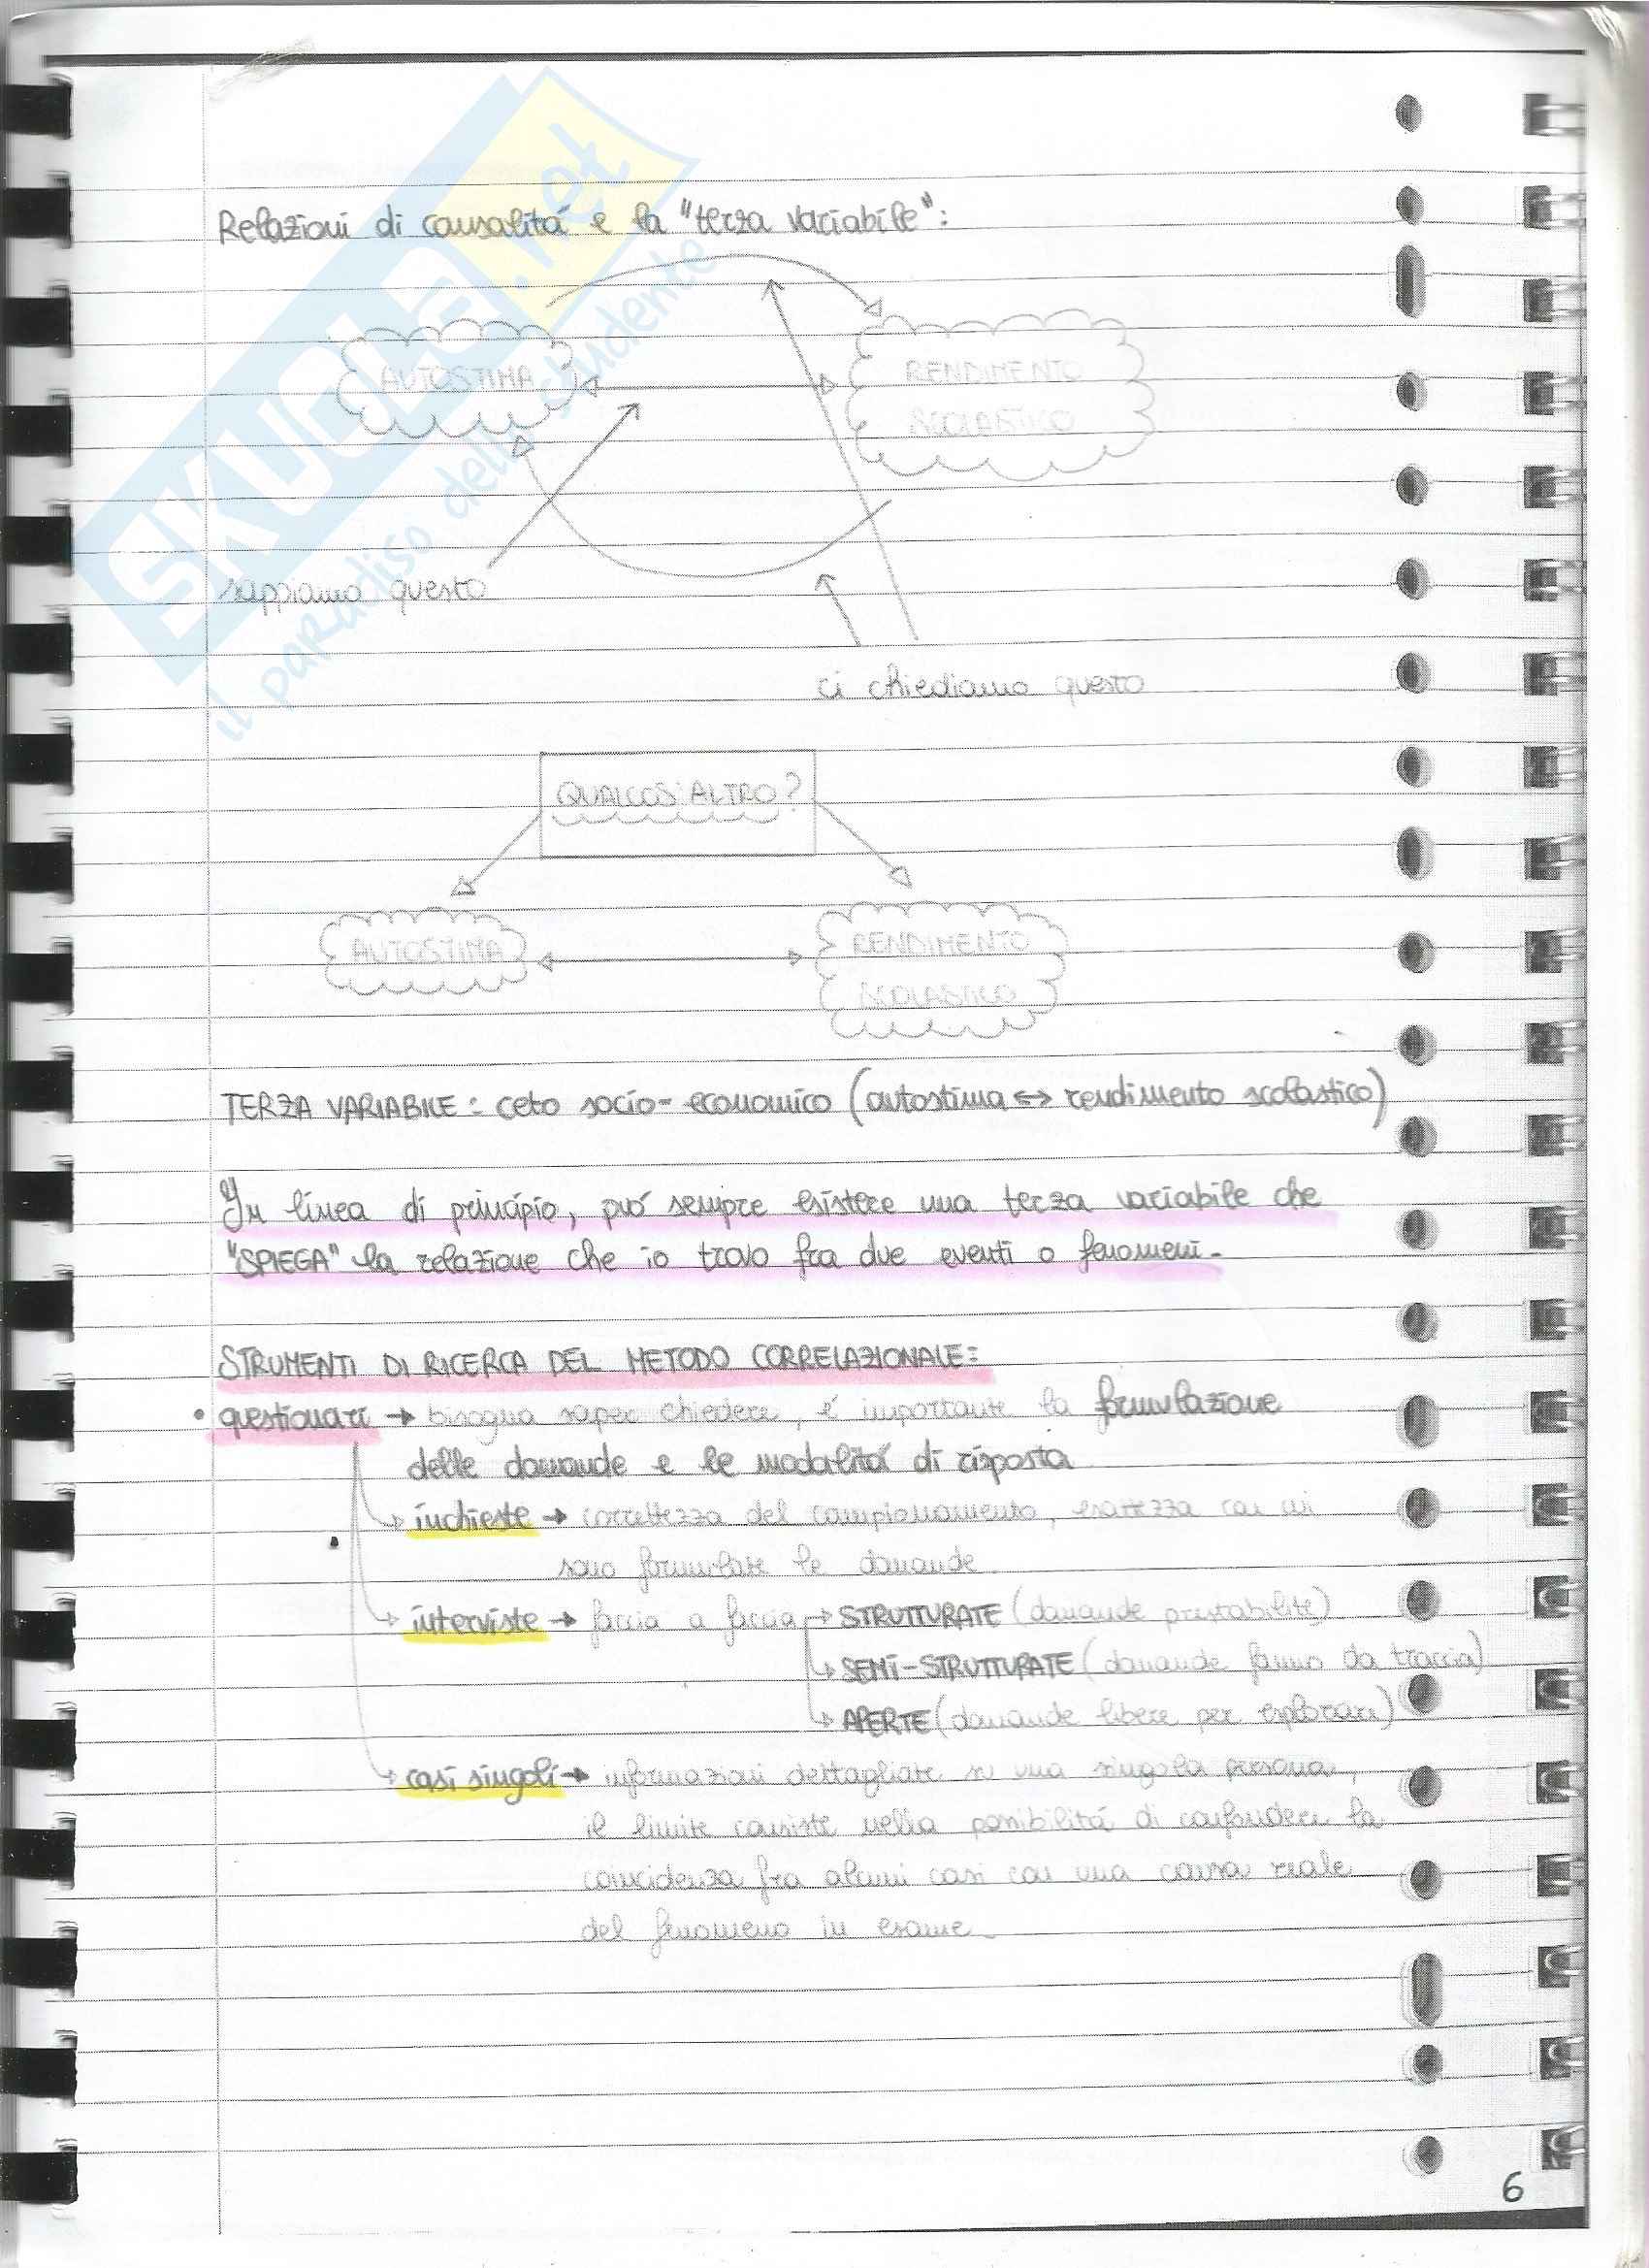 SKUOLA.net
il paradiso dello studente
Relazioni di causalitá e la "terza variabile":
AUTOSTIMA
RENDIMENTO
SCOLASTICO
sappiamo questo
ci chiediamo questo
QUALCOS'ALTRO?
AUTOSTIMA
RENDIMENTO
SCOLASTICO
TERZA VARIABILE: ceto socio-economico (autostima ↔ rendimento scolastico)
In linea di principio, puó sempre esistere una terza variabile che
"SPIEGA" la relazione che io trovo fra due eventi o fenomeni.
STRUMENTI DI RICERCA DEL METODO CORRELAZIONALE:
• questionari → bisogna saper chiedere, é importante la formulazione
delle domande e le modalitá di risposta
inchieste → correttezza del campionamento, esattezza con cui
sono formulate le domande.
interviste → faccia a faccia → STRUTTURATE (domande prestabilite)
SEMI-STRUTTURATE (domande fanno da traccia)
APERTE (domande libere per esplorare)
casi singoli → informazioni dettagliate su una singola persona,
il limite consiste nella possibilitá di confondere la
coincidenza fra alcuni casi con una causa reale
del fenomeno in esame.
6